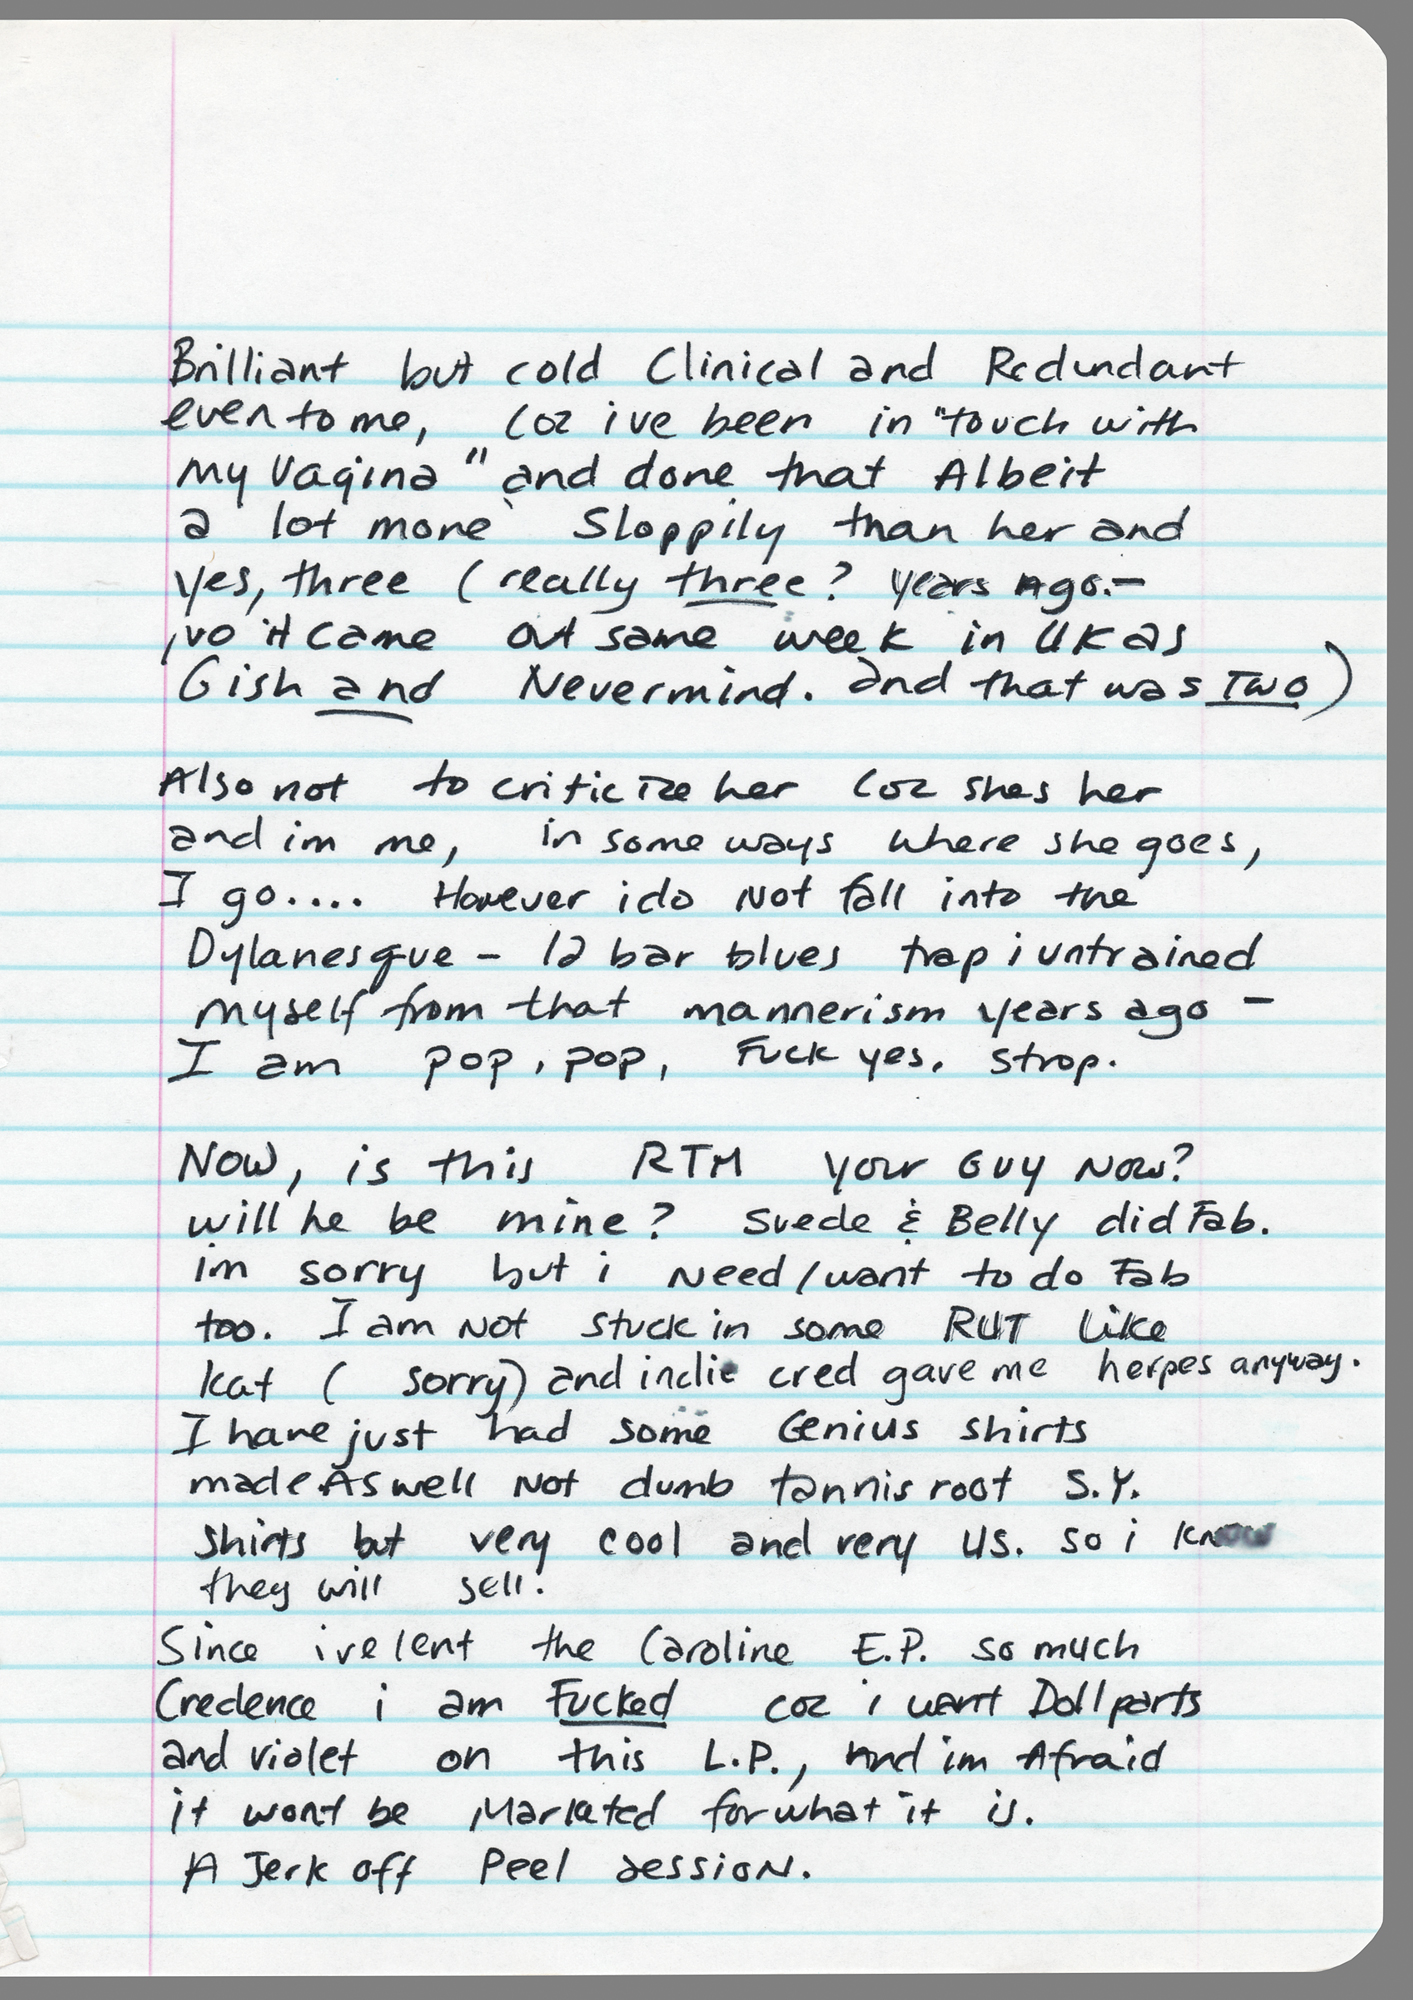 Brilliant but cold Clinical and Redundant
even to me, coz ive been in "touch with
my Vagina" and done that Albeit
a lot more Sloppily than her and
yes, three (really three? years Ago.—
,no it came out same week in UK as
Gish and Nevermind. and that was Two)
Also not to criticize her coz shes her
and im me, in some ways where she goes,
I go.... However i do Not fall into the
Dylanesque - 12 bar blues trap i untrained
myself from that mannerism years ago -
I am pop, pop, Fuck yes. Strop.
Now, is this RTM your Guy Now?
will he be mine? Suede & Belly did Fab.
im sorry but i Need/want to do Fab
too. I am Not stuck in some RUT Like
Kat ( sorry) and indie cred gave me herpes anyway.
I have just had some Genius shirts
made As well Not dumb tannis root S.Y.
Shirts but very cool and very US. so i know
they will sell.
Since ive lent the Caroline E.P. so much
Credence i am Fucked coz i want Doll parts
and violet on this L.P., And im Afraid
it wont be Marketed for what it is.
A Jerk off Peel session.